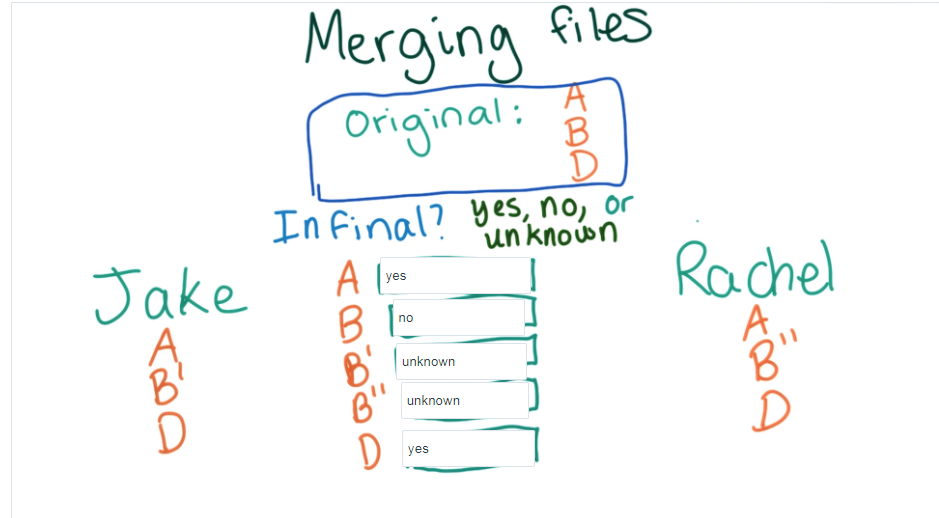 Merging files
Original: A
B
D
In final? yes, no, or
unknown
Jake
A
B'
D
A yes
B no
B' unknown
B" unknown
D yes
Rachel
A
B"
D